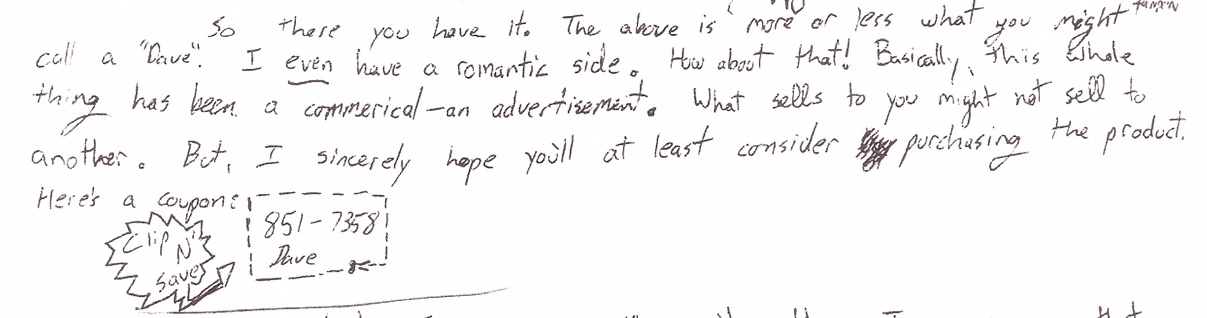 So there you have it. The above is more or less what you might
call a "Dave". I even have a romantic side. How about that! Basically, this whole
thing has been a commerical-an advertisement. What sells to you might not sell to
another. But, I sincerely hope you'll at least consider purchasing the product.
Here's a coupon:
851-7358
Dave
Clip N'
Save